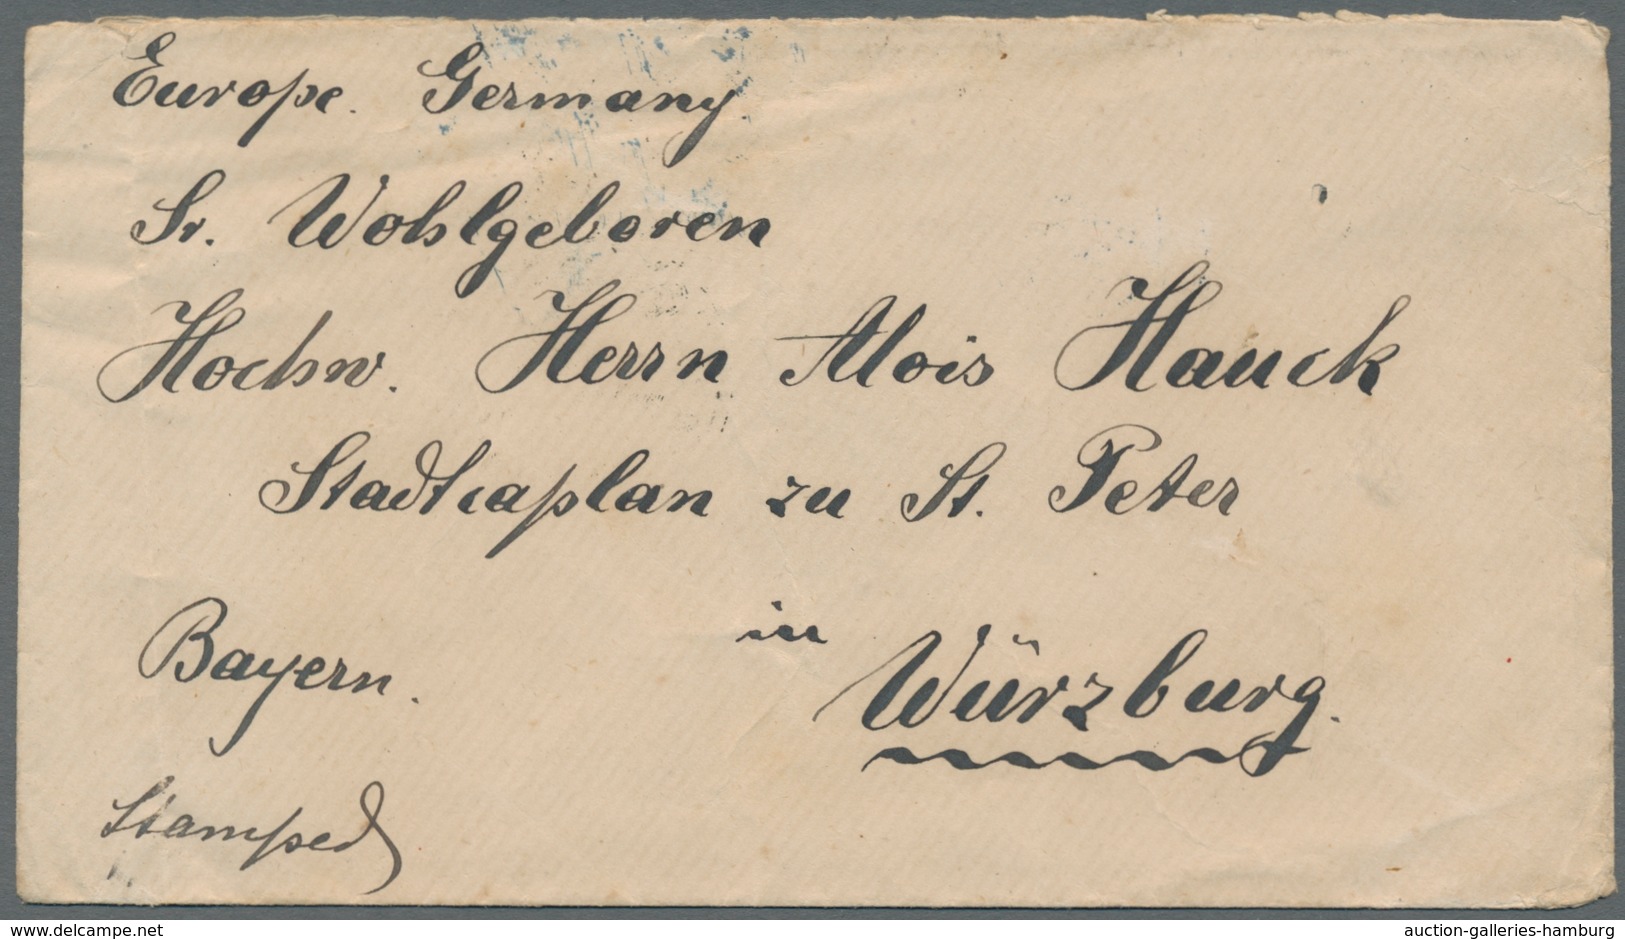 Europe. Germany
Sr. Wohlgeboren
Hochw. Herrn Alois Hauck
Stadtcaplan zu St. Peter
in
Würzburg.
Bayern.
Stamped
www.delcampe.net
auction-galleries-hamburg